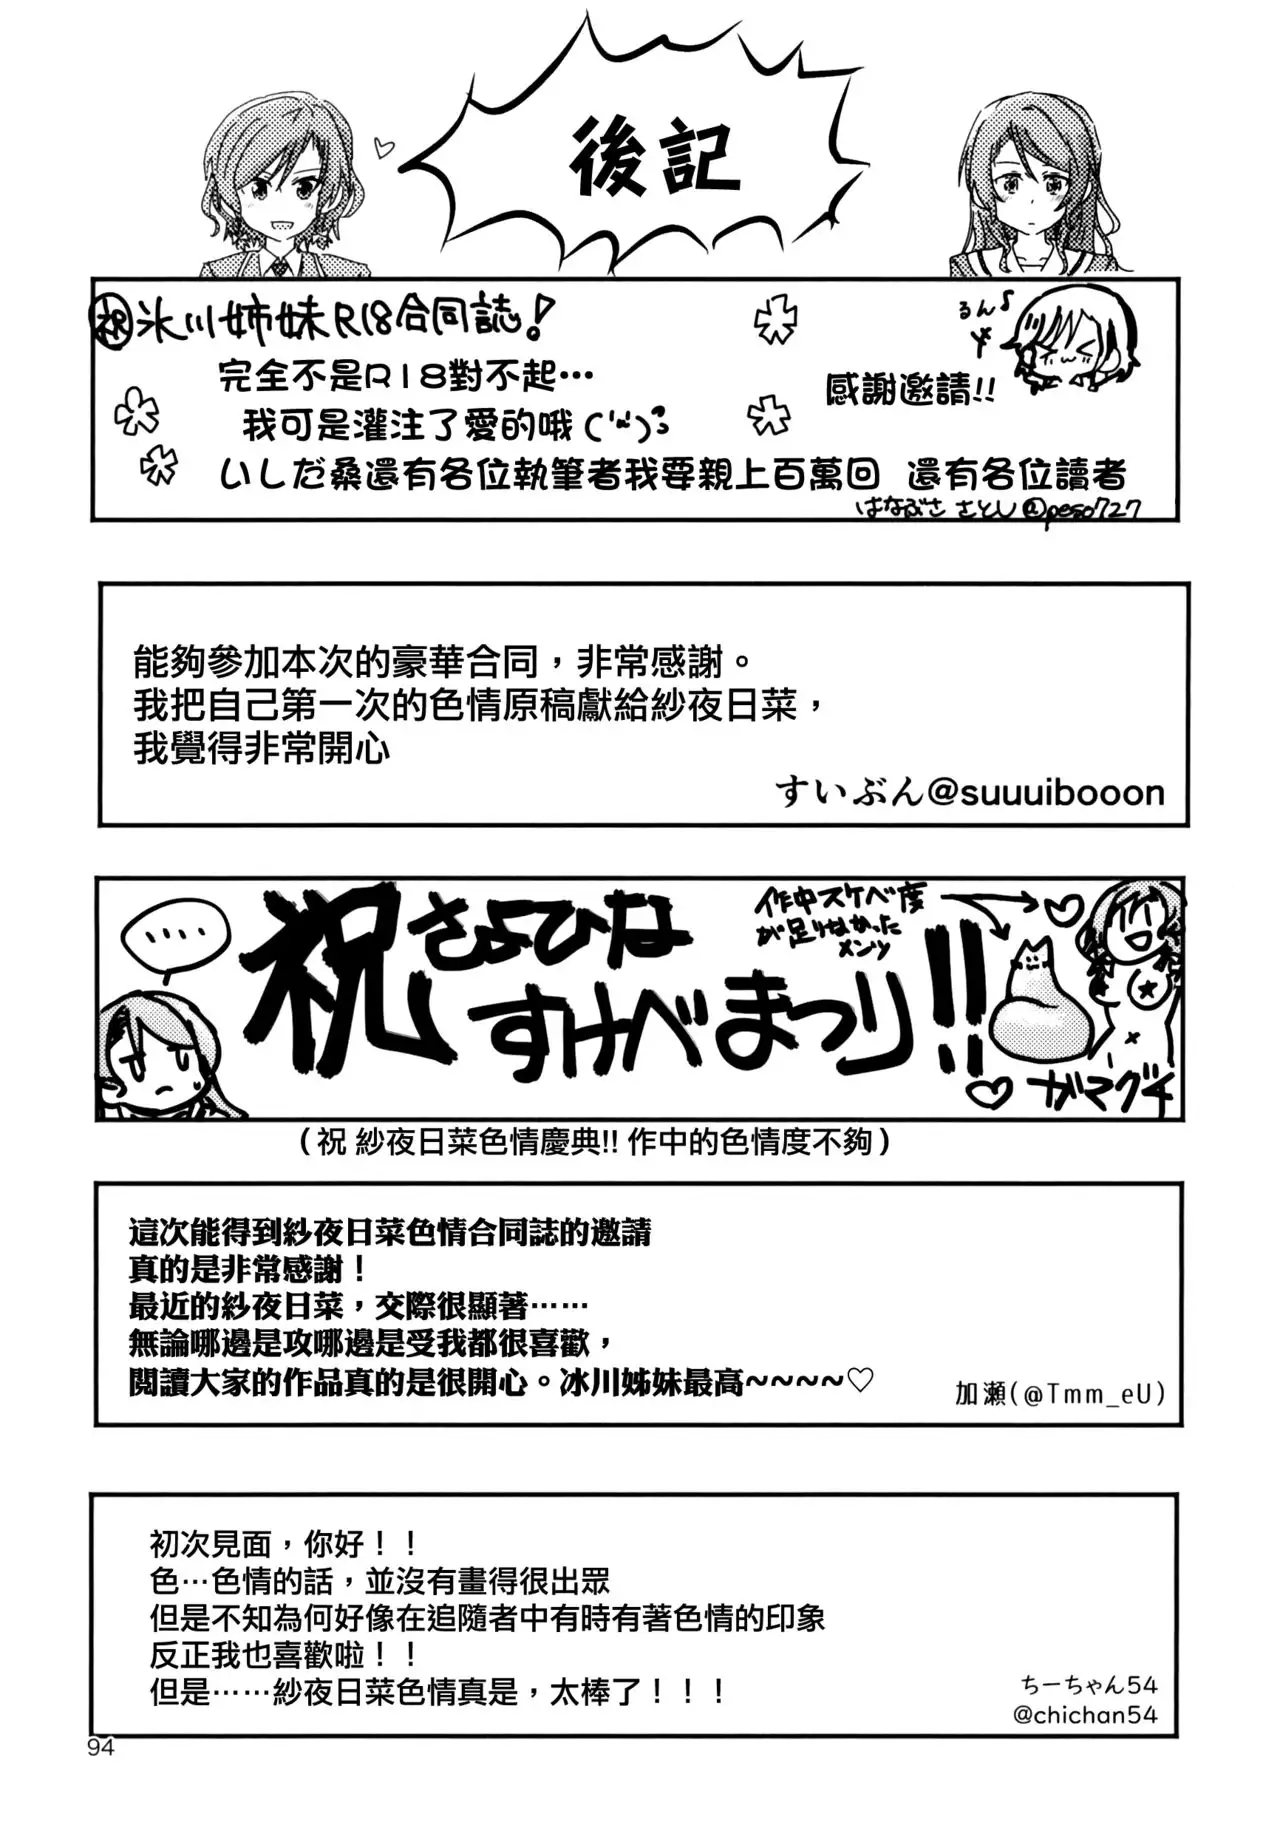 後記
祝氷川姉妹R18合同誌!
るん♪
完全不是R18對不起…
感謝邀請!!
我可是灌注了愛的哦
いしだ桑還有各位執筆者我要親上百萬回 還有各位讀者
はなぶさ さとし@peso727
能夠參加本次的豪華合同，非常感謝。
我把自己第一次的色情原稿獻給紗夜日菜，
我覺得非常開心
すいぶん@suuuibooon
‥‥
祝さよひな
すけべまつり!!
作中スケベ度
が足りなかった
メンツ
ガマグチ
（祝 紗夜日菜色情慶典!! 作中的色情度不夠）
這次能得到紗夜日菜色情合同誌的邀請
真的是非常感謝！
最近的紗夜日菜，交際很顯著……
無論哪邊是攻哪邊是受我都很喜歡，
閱讀大家的作品真的是很開心。冰川姊妹最高~~~~♡
加瀬(@Tmm_eU)
初次見面，你好！！
色…色情的話，並沒有畫得很出眾
但是不知為何好像在追隨者中有時有著色情的印象
反正我也喜歡啦！！
但是……紗夜日菜色情真是，太棒了！！！
ちーちゃん54
@chichan54
94